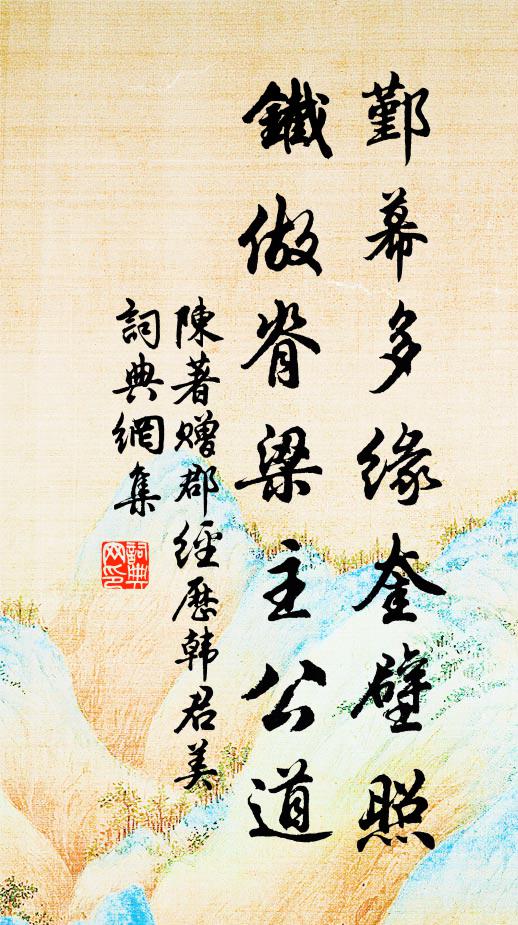 鄞幕多緣奎壁照
鐵做脊梁主公道
陳著贈郡經歷韩君美
詞典網集
詞典网印